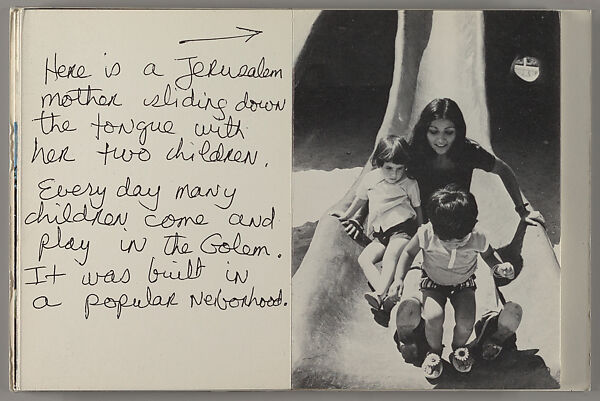 Here is a Jerusalem
mother sliding down
the tongue with
her two children.
Every day many
children come and
play in the Golem.
It was built in
a popular Neiborhood.